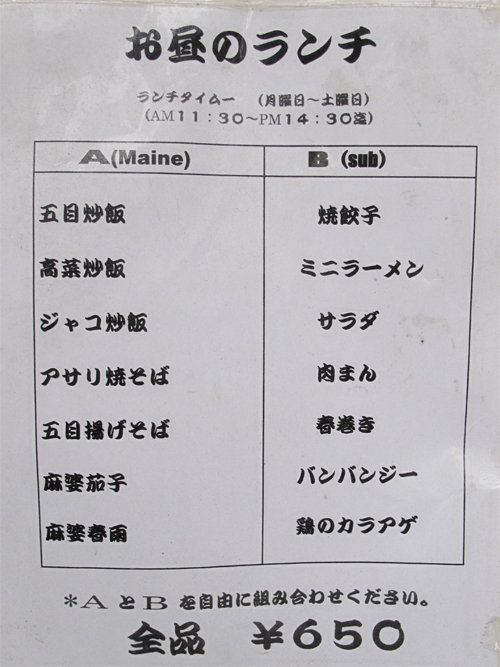 お昼のランチ
ランチタイムー （月曜日～土曜日）
（AM11：30～PM14：30迄）
A(Maine) B（sub）
五目炒飯 焼餃子
高菜炒飯 ミニラーメン
ジャコ炒飯 サラダ
アサリ焼そば 肉まん
五目揚げそば 春巻き
麻婆茄子 バンバンジー
麻婆春雨 鶏のカラアゲ
*A とB を自由に組み合わせください。
全品 ￥650